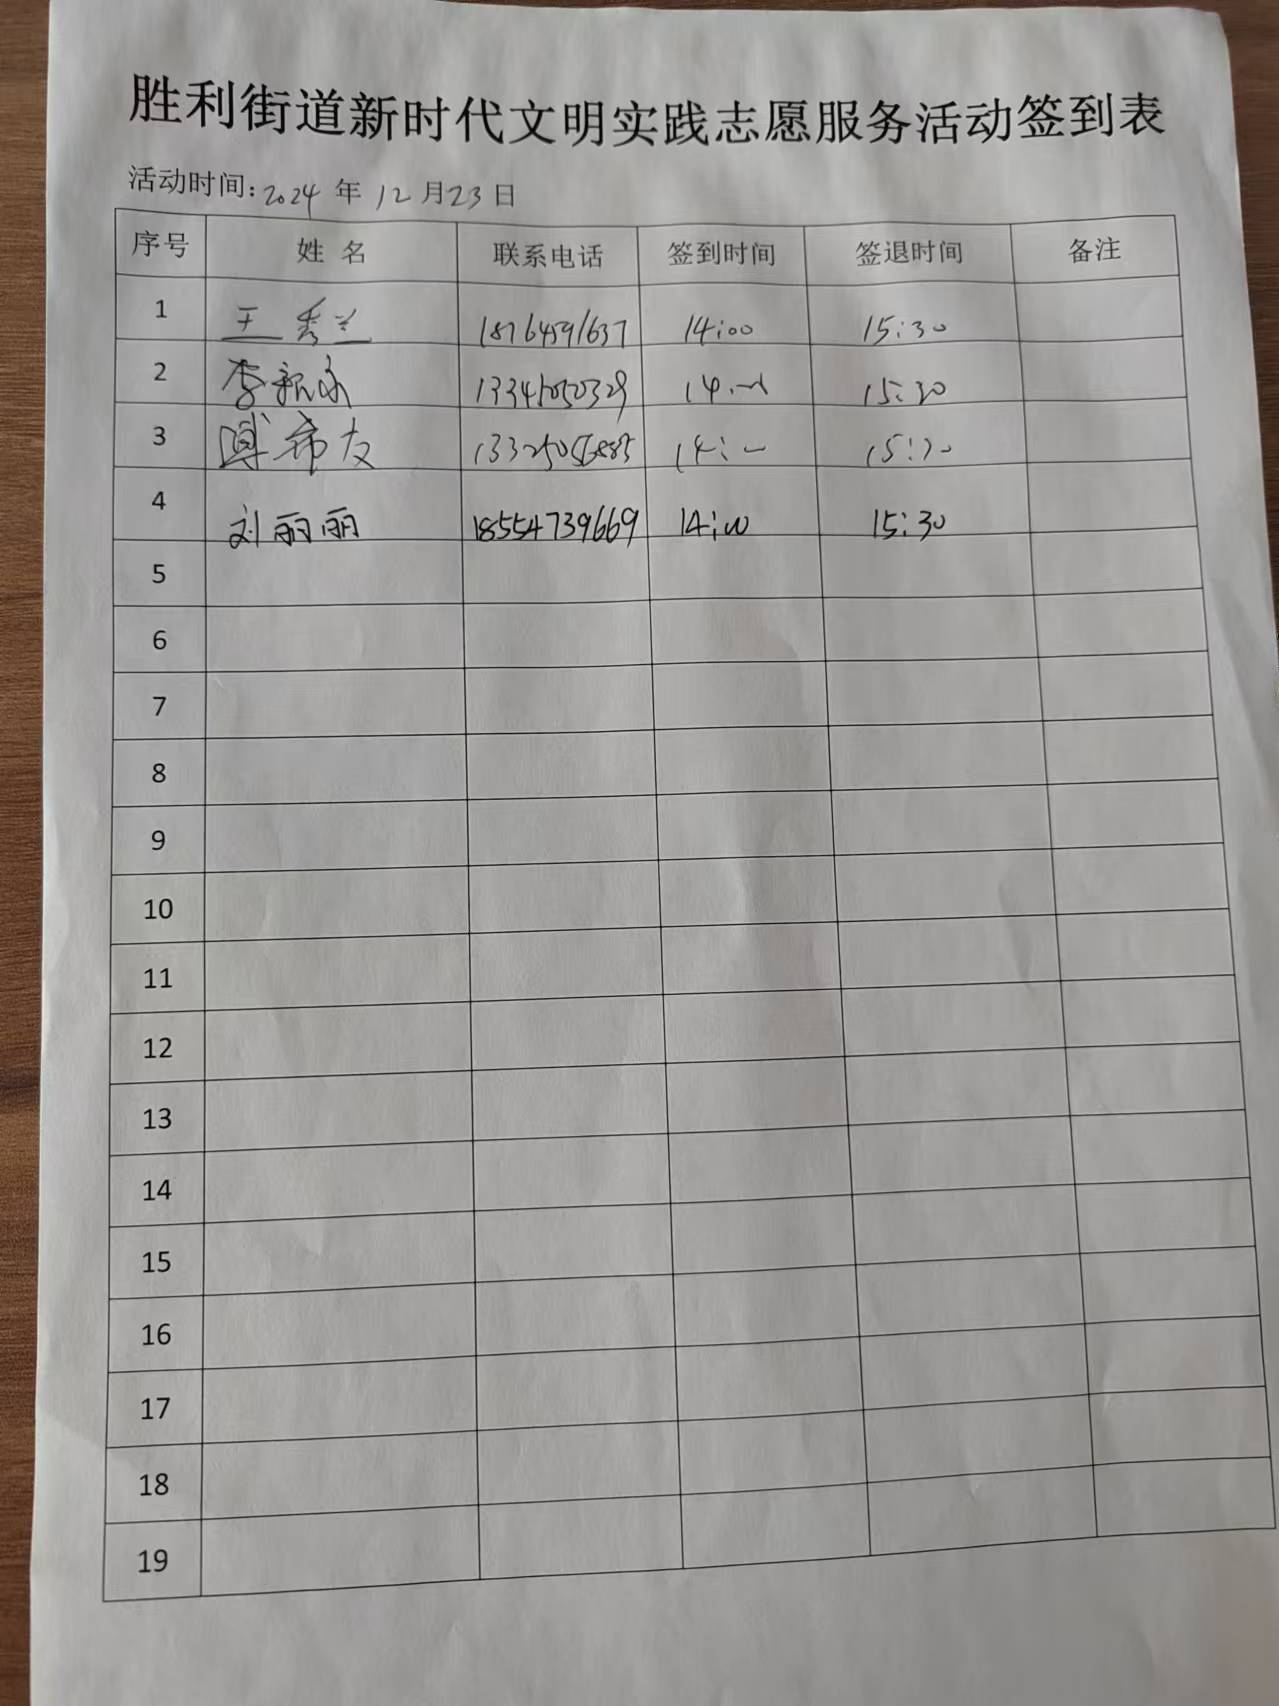 胜利街道新时代文明实践志愿服务活动签到表
活动时间:2024年12月23日
序号 姓名 联系电话 签到时间 签退时间 备注
1 王秀兰 18764591637 14:00 15:30
2 李 15:30
3 傅希友 14:00 15:30
4 刘丽丽 18554739669 14:00 15:30
5
6
7
8
9
10
11
12
13
14
15
16
17
18
19